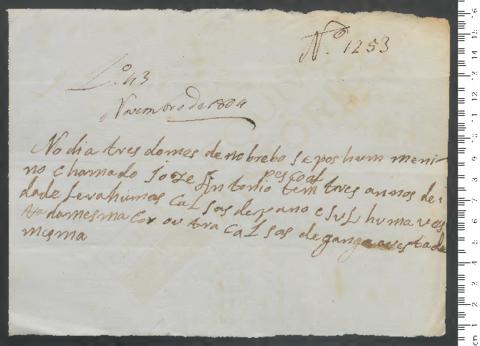 Nº 1253
Lº 43
Novembro de 1804
No dia tres domes de nobrebo Se pos hum meni-
no chamado Joze Antonio Pascoal tem tres annos de i-
dade Leva humas Calsas de pano e sul huma ves
tia da mesma Cor outra Calsas de ganga vestia de
misma